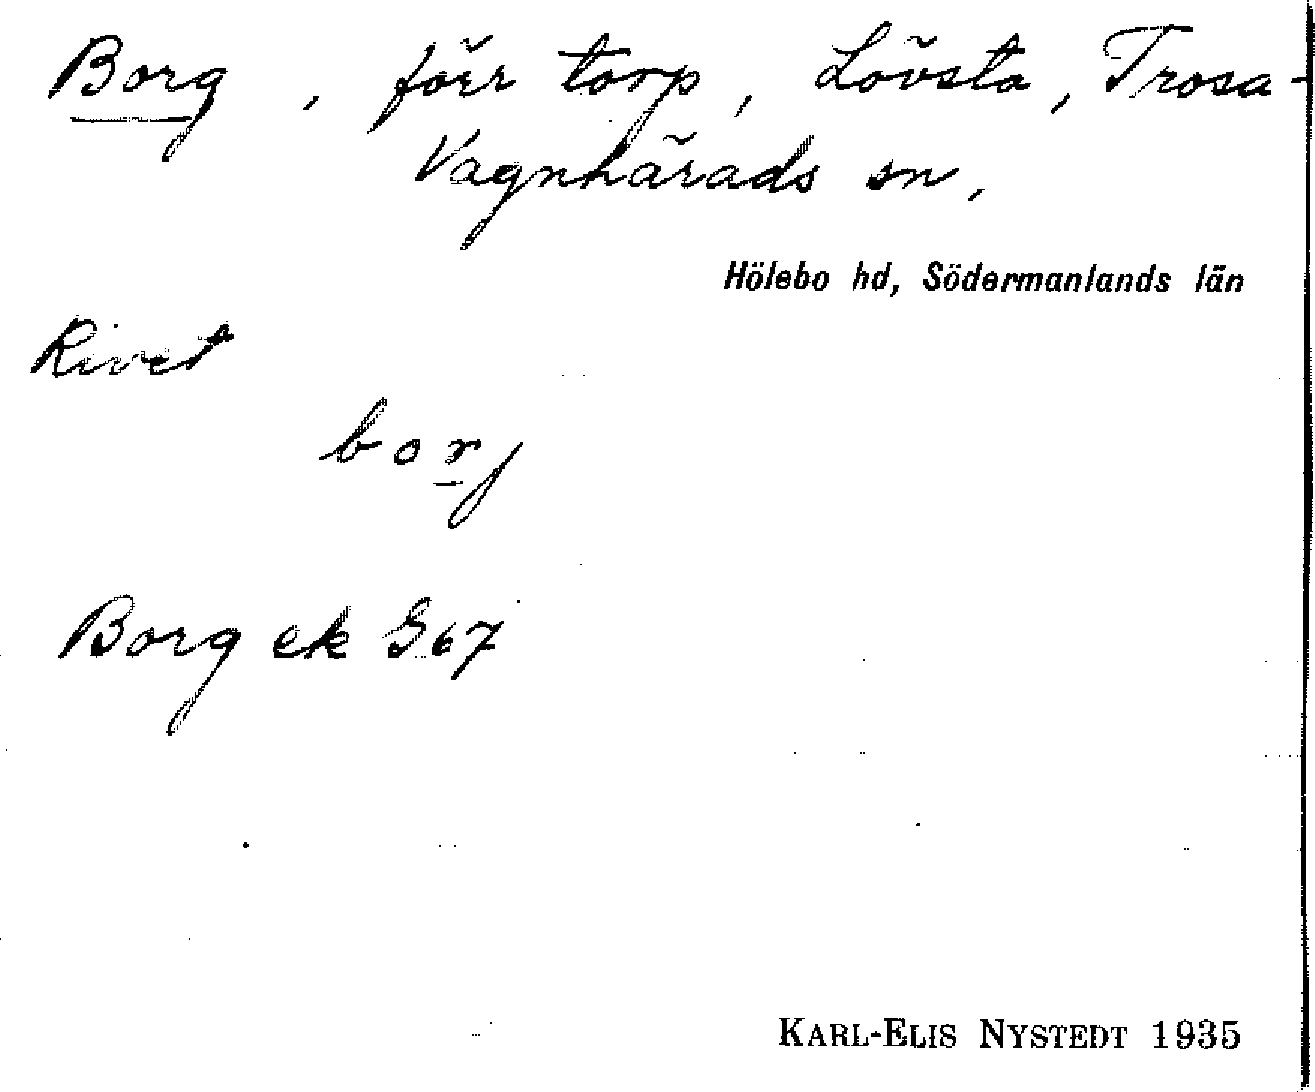 Borg, förr torp, Lövsta, Trosa-
Vagnhärads sn,
Hölebo hd, Södermanlands län
Rivet
borj
Borg ek G67
KARL-ELIS NYSTEDT 1935